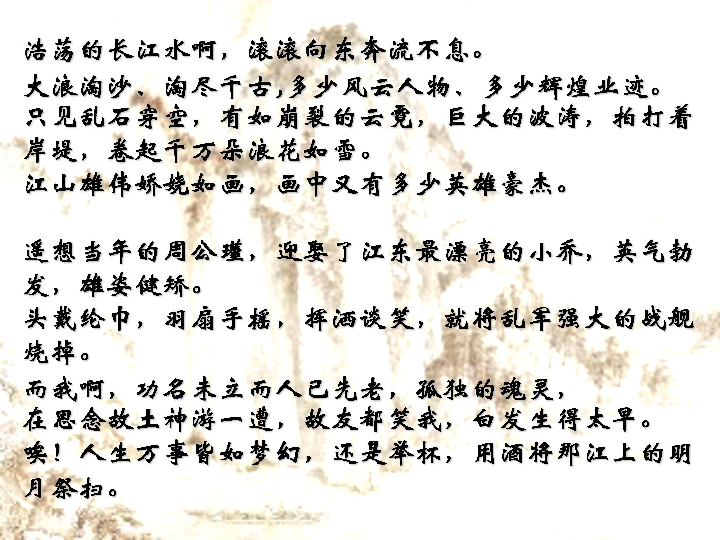 浩荡的长江水啊，滚滚向东奔流不息。
大浪淘沙、淘尽千古,多少风云人物、多少辉煌业迹。
只见乱石穿空，有如崩裂的云霓，巨大的波涛，拍打着
岸堤，卷起千万朵浪花如雪。
江山雄伟娇娆如画，画中又有多少英雄豪杰。
遥想当年的周公瑾，迎娶了江东最漂亮的小乔，英气勃
发，雄姿健矫。
头戴纶巾，羽扇手摇，挥洒谈笑，就将乱军强大的战舰
烧掉。
而我啊，功名未立而人已先老，孤独的魂灵，
在思念故土神游一遭，故友都笑我，白发生得太早。
唉！人生万事皆如梦幻，还是举杯，用酒将那江上的明
月祭扫。